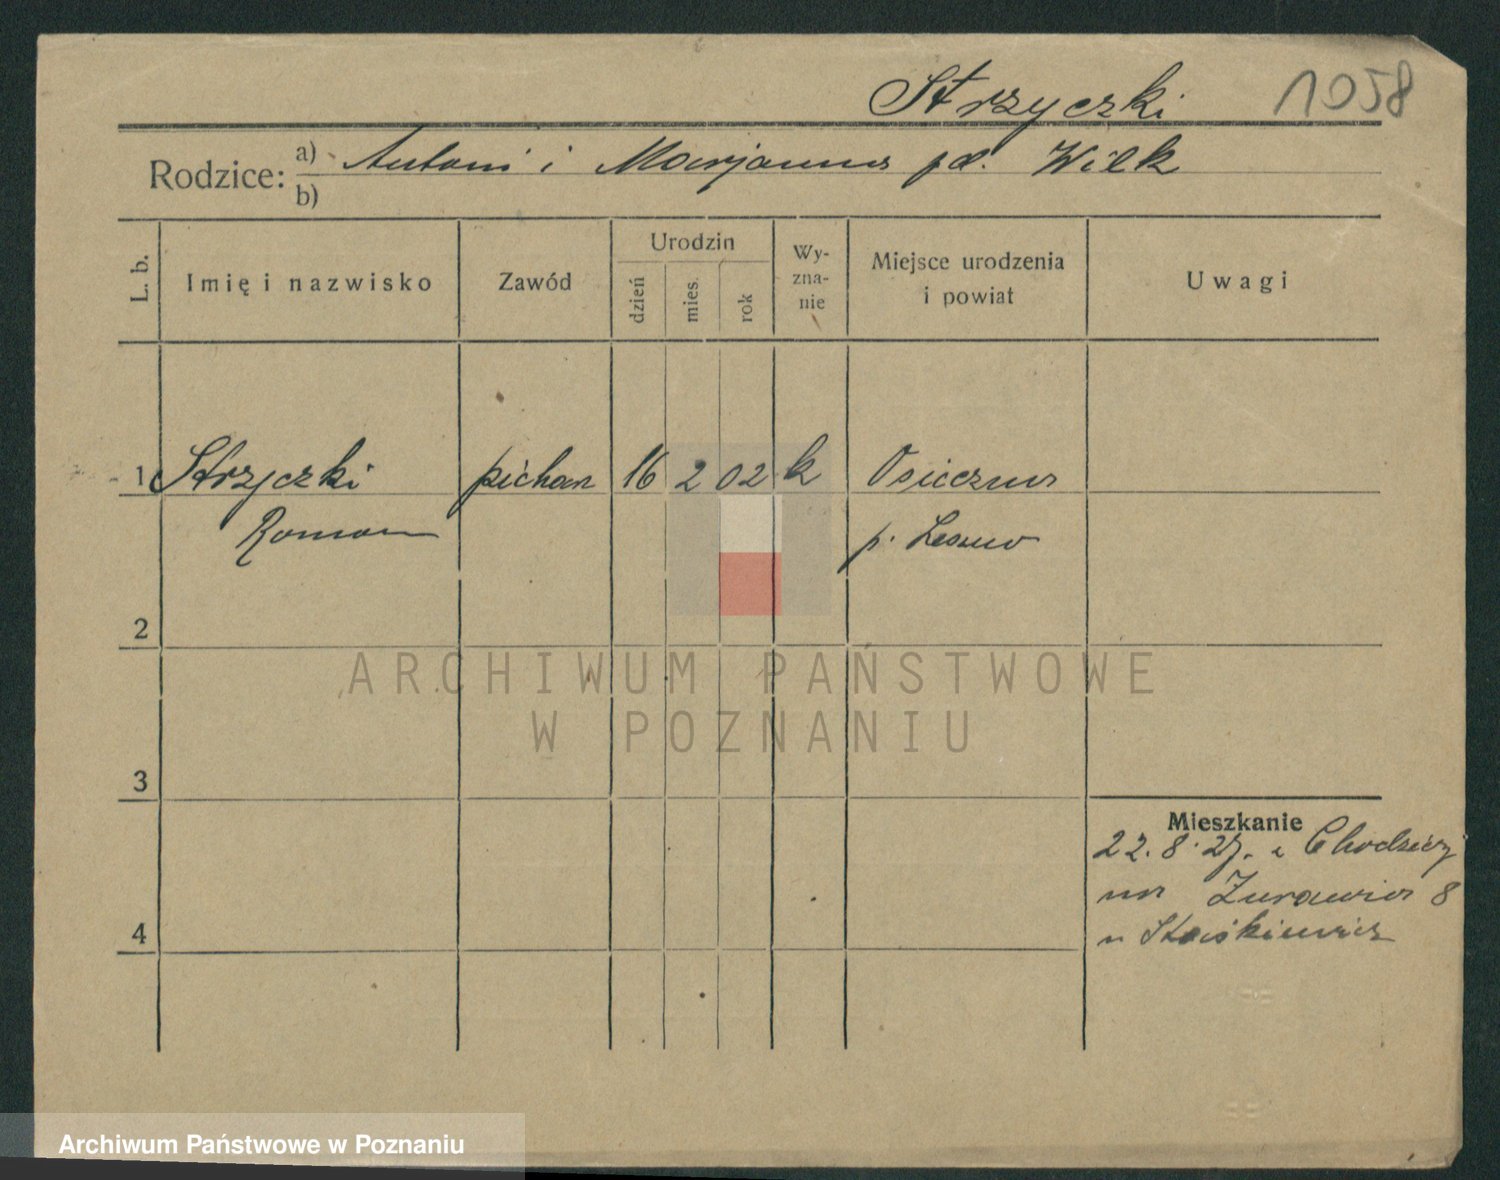 Strzyczki 1058
Rodzice: a) Antoni i Marjanna pd. Wilk
b)
L. b. Imię i nazwisko Zawód Urodzin dzień mies. rok Wy-zna-nie Miejsce urodzenia i powiat Uwagi
1 Strzyczki 16 2 02 k Osieczna
Roman p. Leszno
2
ARCHIWUM PAŃSTWOWE
W POZNANIU
3
Mieszkanie
22.8.27. z Chodzieży
na Żurawia 8
4
u
Archiwum Państwowe w Poznaniu